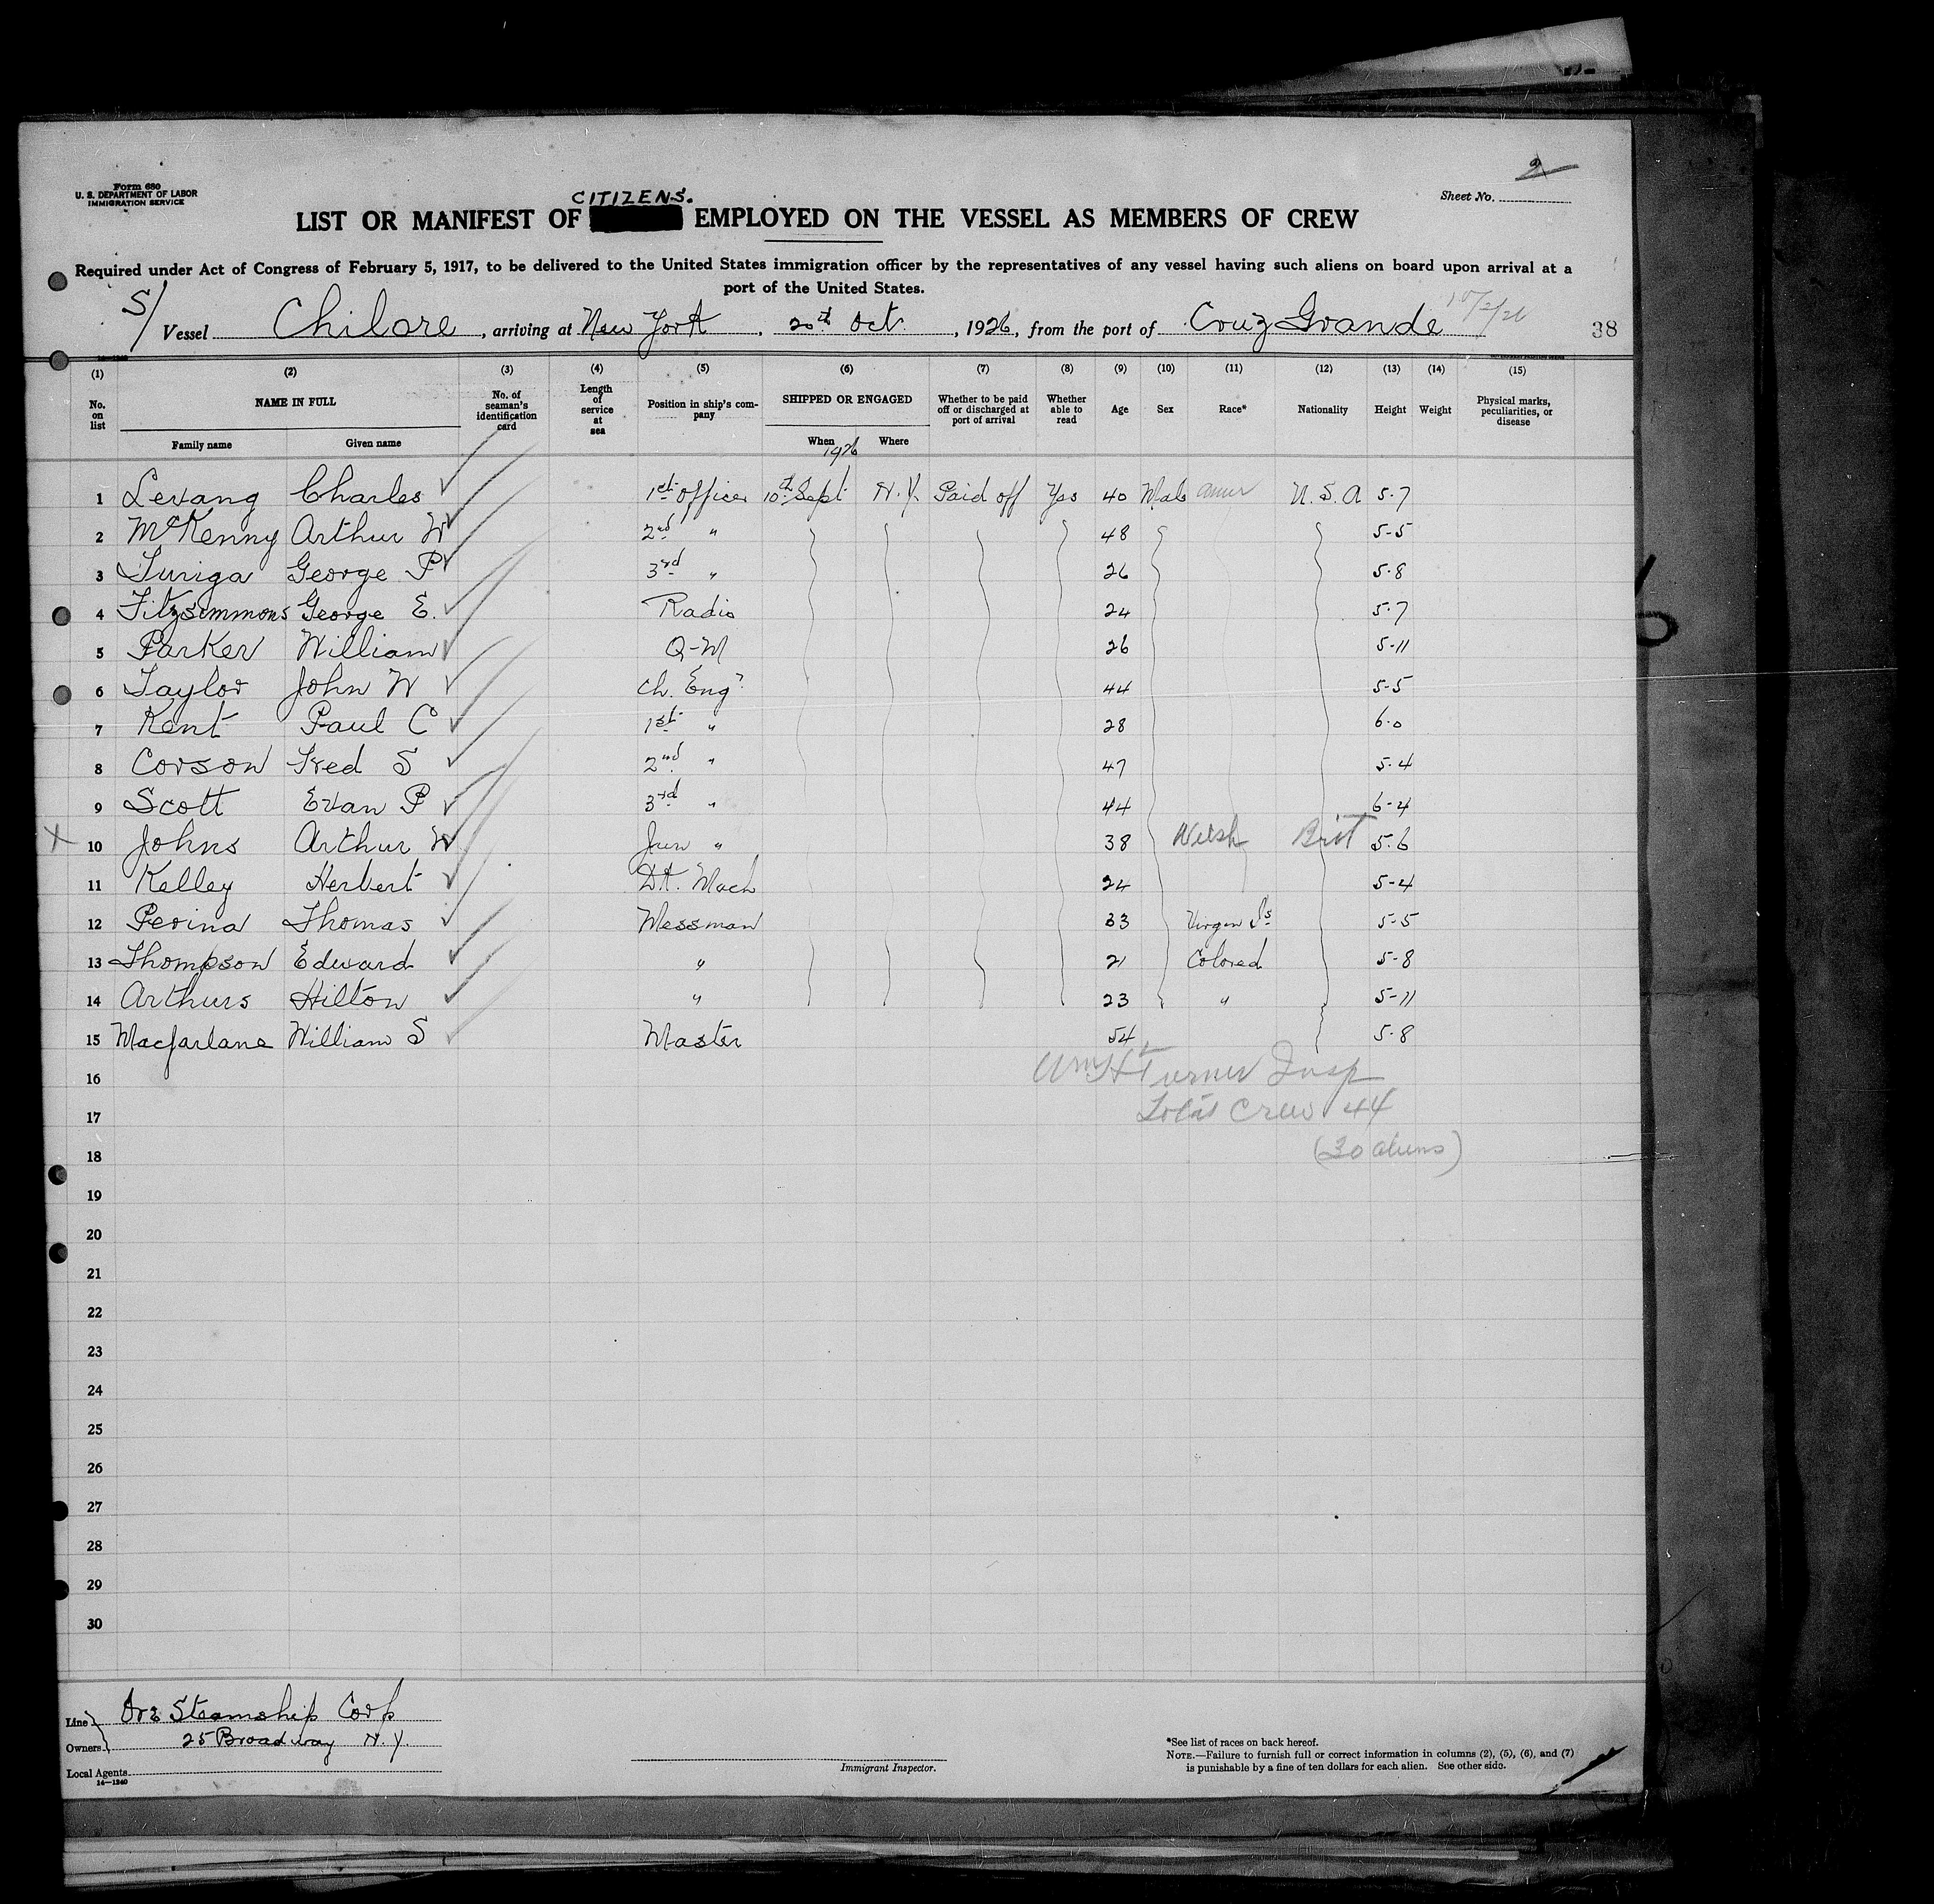 Form 680
U. S. DEPARTMENT OF LABOR
IMMIGRATION SERVICE
Sheet No. 2
CITIZENS.
LIST OR MANIFEST OF EMPLOYED ON THE VESSEL AS MEMBERS OF CREW
Required under Act of Congress of February 5, 1917, to be delivered to the United States immigration officer by the representatives of any vessel having such aliens on board upon arrival at a
port of the United States.
S/ Vessel Chilore, arriving at New York, 20th Oct., 1926, from the port of Cruz Grande
38
(1) (2) (3) (4) (5) (6) (7) (8) (9) (10) (11) (12) (13) (14) (15)
No. on list NAME IN FULL No. of seaman's identification card Length of service at sea Position in ship's company SHIPPED OR ENGAGED Whether to be paid off or discharged at port of arrival Whether able to read Age Sex Race* Nationality Height Weight Physical marks, peculiarities, or disease
Family name Given name When Where
1926
1 Levang Charles 1st officer 10th Sept N.Y. Paid off Yes 40 Male Amer U.S.A 5-7
2 McKenny Arthur W 2nd " 48 5-5
3 Turiga George P 3rd " 26 5-8
4 Fitzsimmons George E. Radio 24 5-7
5 Parker William Q-M 26 5-11
6 Taylor John W Ch. Engr 44 5-5
7 Kent Paul C 1st " 28 6-0
8 Corson Fred S 2nd " 47 5-4
9 Scott Evan P 3rd " 44 6-4
X 10 Johns Arthur W Jun " 38 Welsh Brit 5-6
11 Kelley Herbert Dk. Mach 24 5-4
12 Perina Thomas Messman 33 Virgin Is 5-5
13 Thompson Edward " 21 Colored 5-8
14 Arthurs Hilton " 23 " 5-11
15 Macfarlane William S Master 54 5-8
16 Wm H Turner Insp
17 Total Crew 44
18 (30 aliens)
19
20
21
22
23
24
25
26
27
28
29
30
Line Ore Steamship Corp
Owners 25 Broadway N.Y.
Local Agents
14—1240
Immigrant Inspector.
*See list of races on back hereof.
NOTE.—Failure to furnish full or correct information in columns (2), (5), (6), and (7)
is punishable by a fine of ten dollars for each alien. See other side.